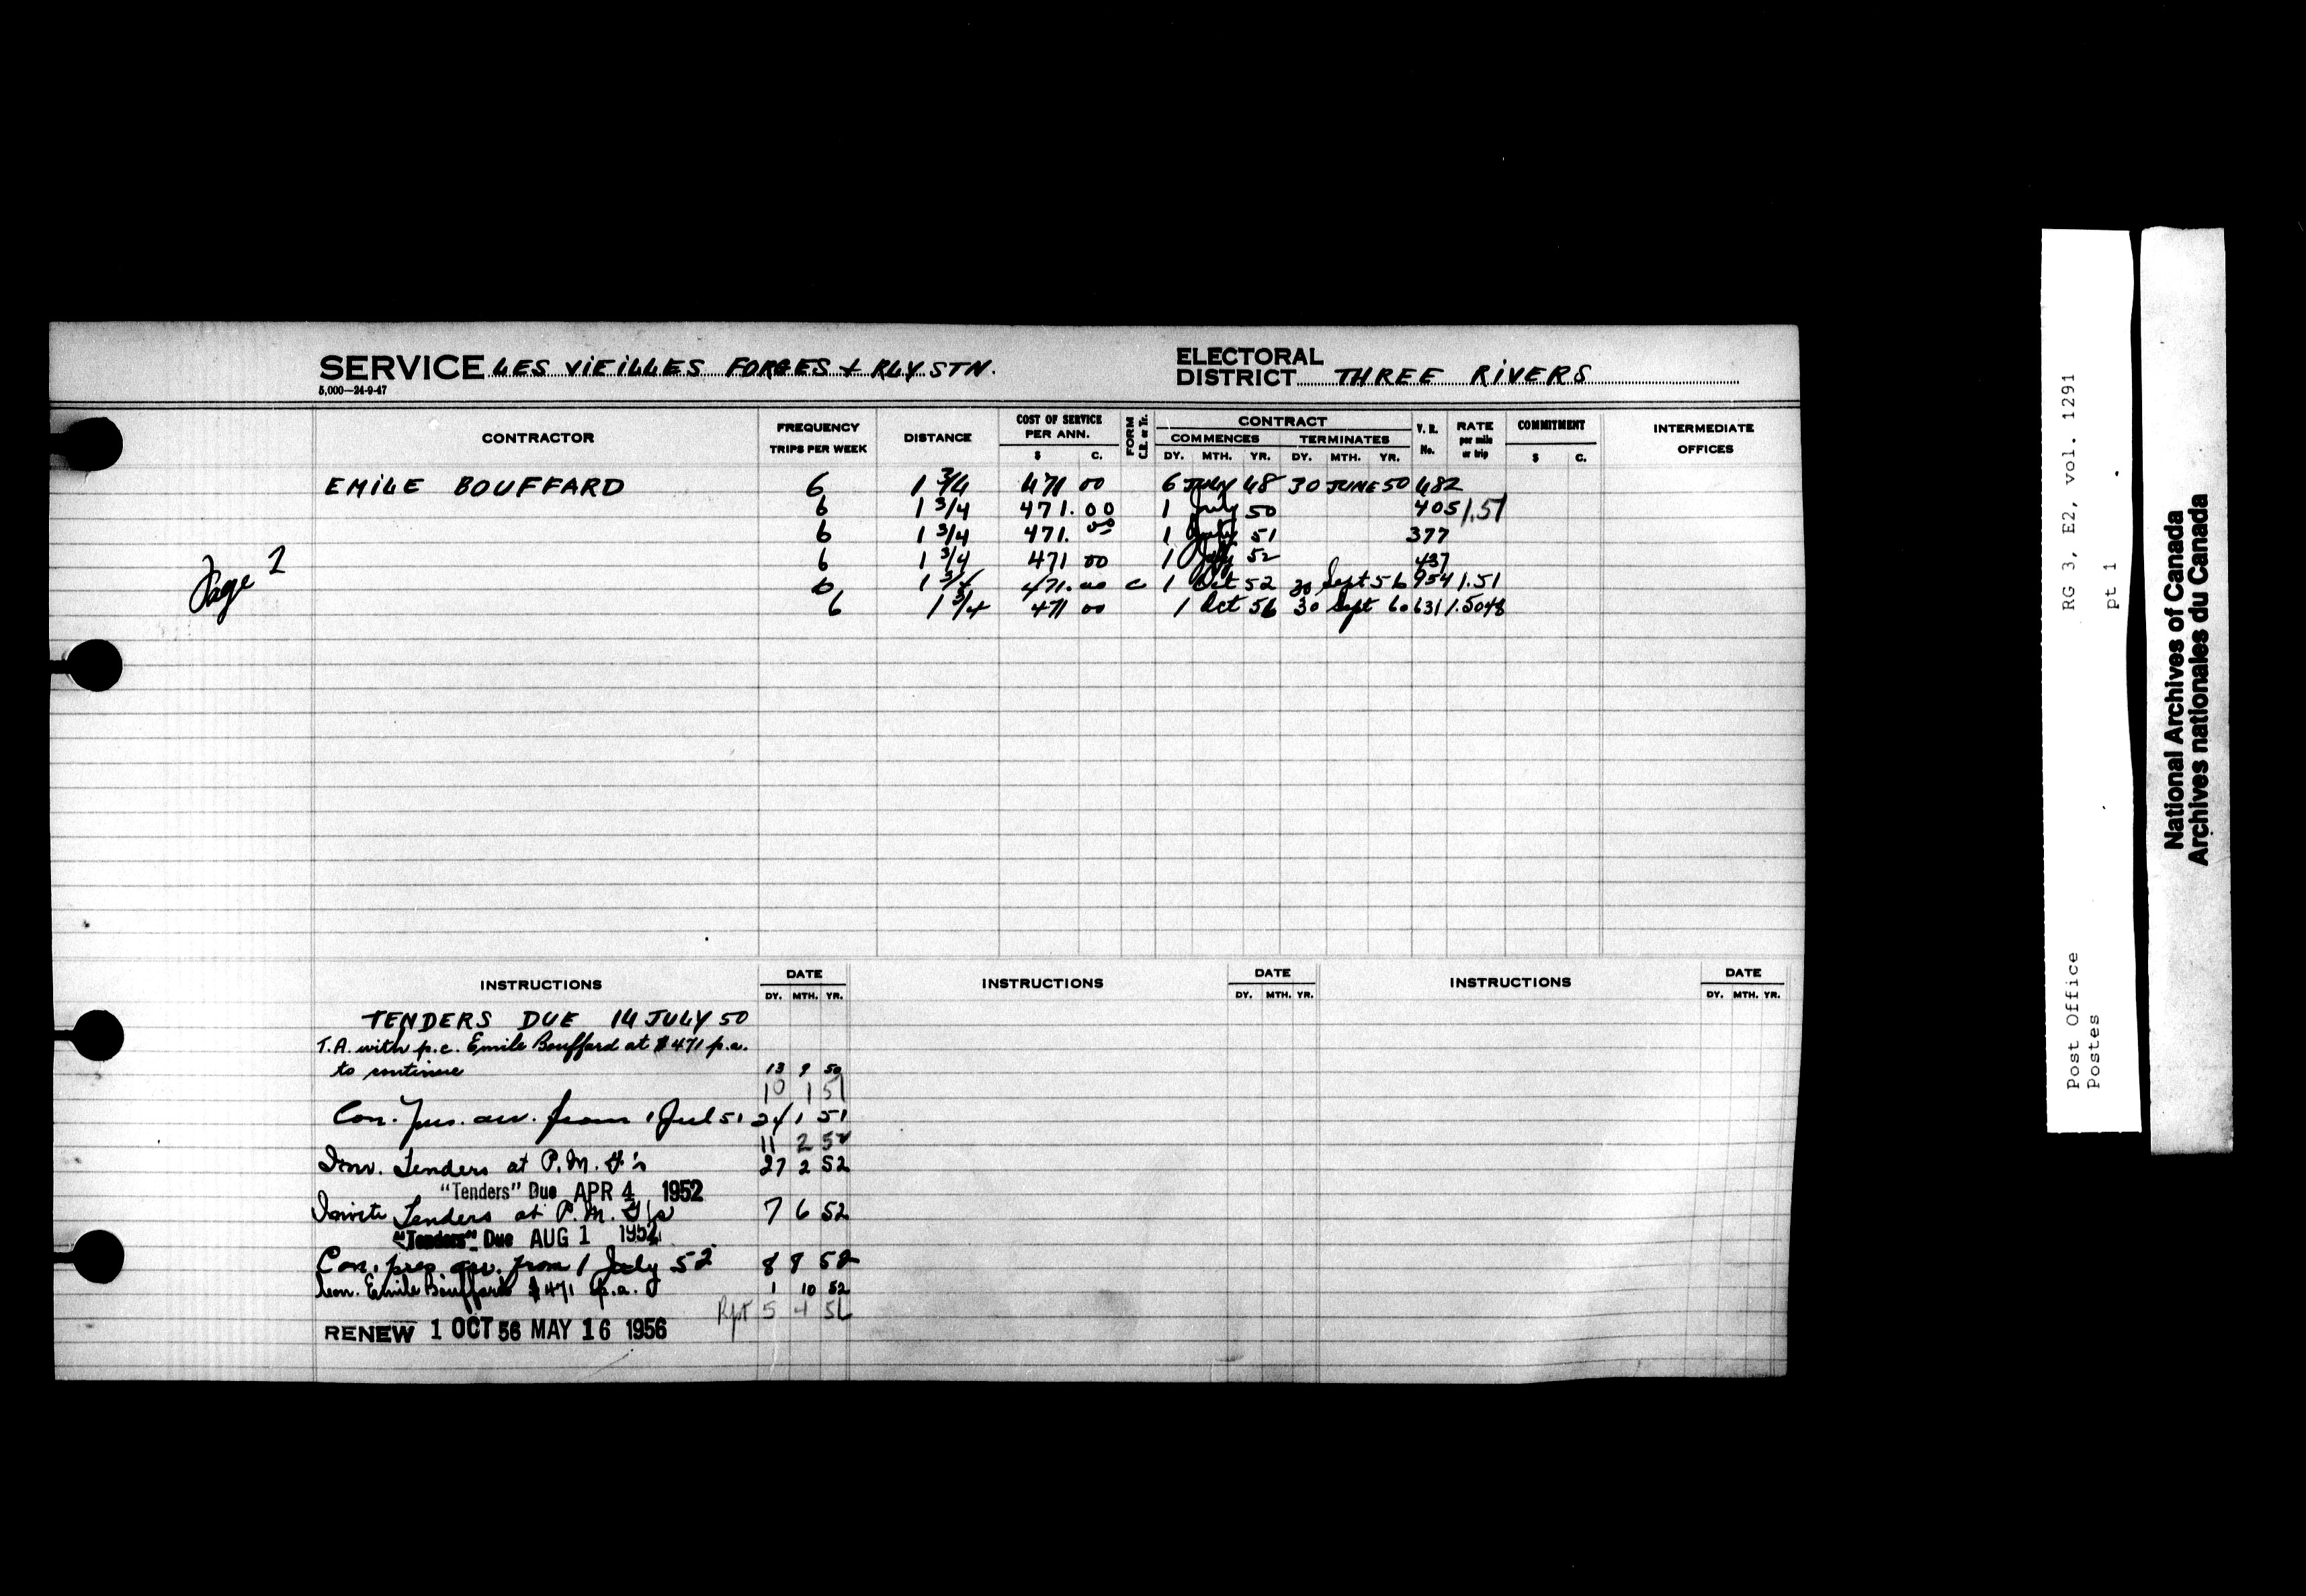 SERVICE LES VIEILLES FORGES & RLY STN. ELECTORAL DISTRICT THREE RIVERS
5,000—24-9-47
CONTRACTOR FREQUENCY TRIPS PER WEEK DISTANCE COST OF SERVICE PER ANN. $ C. FORM C.E. or Tr. CONTRACT COMMENCES DY. MTH. YR. TERMINATES DY. MTH. YR. V. R. No. RATE per mile or trip COMMITMENT $ C. INTERMEDIATE OFFICES
EMILE BOUFFARD 6 1 3/4 471 00 6 JULY 48 30 JUNE 50 482
6 1 3/4 471.00 1 July 50 405 1.51
6 1 3/4 471.00 1 July 51 377
6 1 3/4 471 00 1 July 52 437
6 1 3/4 471.00 C 1 Oct 52 30 Sept 56 954 1.51
6 1 3/4 471 00 1 Oct 56 30 Sept 60 631 1.5048
Page 2
INSTRUCTIONS DATE DY. MTH. YR. INSTRUCTIONS DATE DY. MTH. YR. INSTRUCTIONS DATE DY. MTH. YR.
TENDERS DUE 14 JULY 50
T.A. with p.c. Emile Bouffard at $471 p.a.
to continue 13 9 50
10 1 51
Con. arr. from 1 Jul 51 24 1 51
11 2 52
Inv. Tenders at P.M.G's 27 2 52
"Tenders" Due APR 4 1952
Invite Tenders at P.M.G's 7 6 52
"Tenders" Due AUG 1 1952
Con. pres arr. from 1 July 52 8 9 52
Con. Emile Bouffard $471 p.a. 1 10 52
Rpt 5 4 56
RENEW 1 OCT 56 MAY 16 1956
RG 3, E2, vol. 1291
pt 1
Post Office
Postes
National Archives of Canada
Archives nationales du Canada